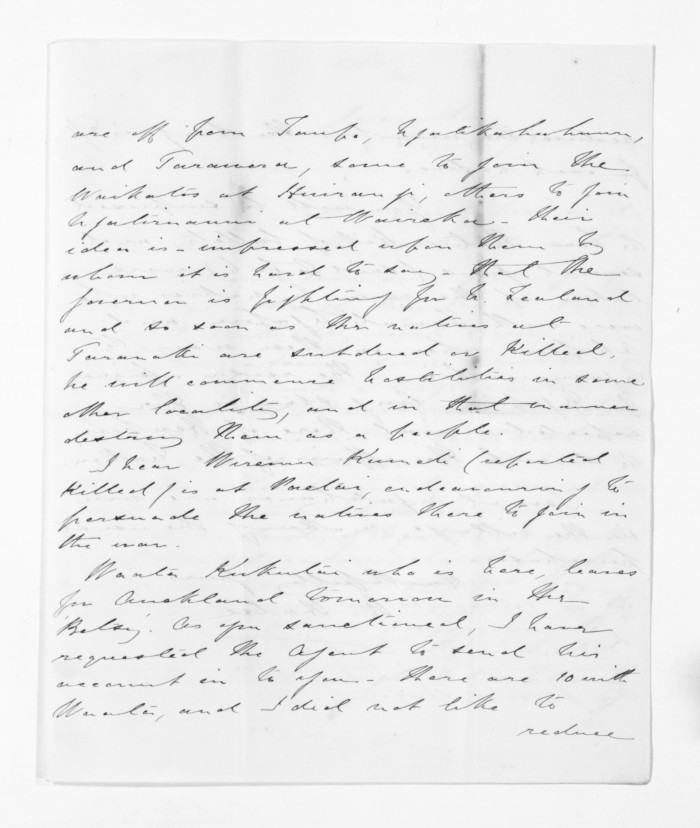 are off from Taupo, Ngatikahuhunu,
and Tarawera, some to join the
Waikatos at Huirangi, others to join
Ngatiruanui at Waireka - their
idea is - impressed upon them by
whom it is hard to say - that the
Governor is fighting for N. Zealand
and so soon as the natives at
Taranaki are subdued or killed,
he will commence hostilities in some
other locality, and in that manner
destroy them as a people.
I hear Wiremu Kumete (reported
killed) is at endeavouring to
persuade the natives there to join in
the war.
Waata Kukutai who is here, leaves
for Auckland tomorrow in the
'Betsy'. As you sanctioned, I have
requested the Agent to send his
account in to you - there are 10 with
Waata, and I did not like to
reduce